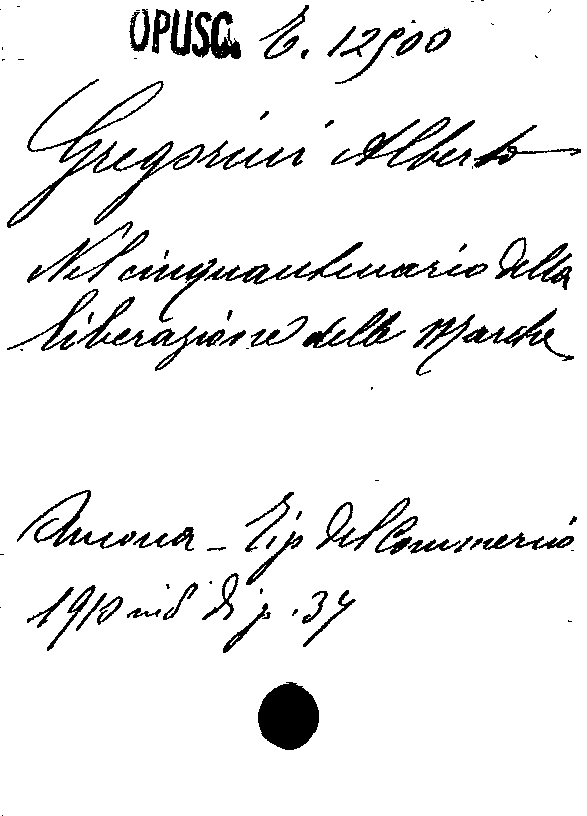 OPUSC. E. 12500
Gregorini Alberto
Nel cinquantenario della
liberazione delle Marche
Ancona - Tip del Commercio
1910 in 8 di p. 34